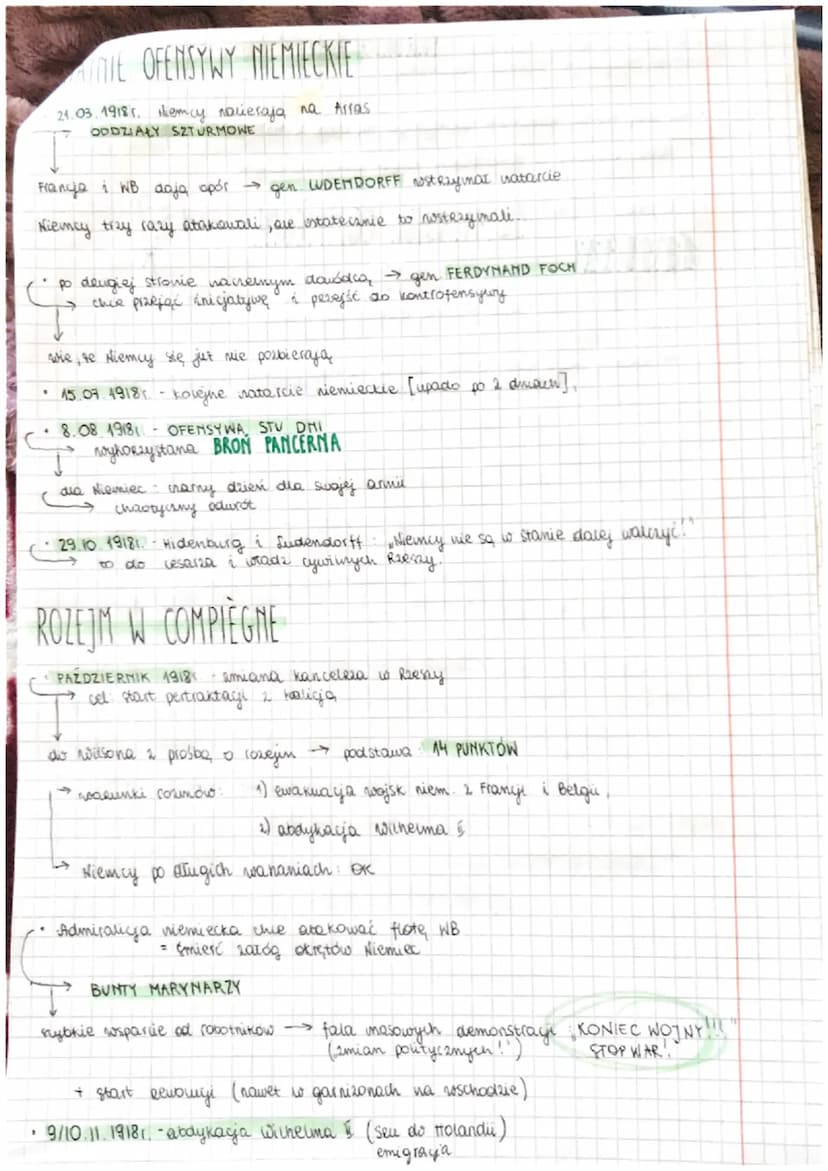 OFENSYWY NIEMIECKIE
21.03.1918r. Niemcy nacierają na Arras
→ ODDZIAŁY SZTURMOWE
Francja i WB dają opór → gen LUDENDORFF wstrzymał natarcie
Niemcy trzy razy atakowali, ale ostatecznie to wstrzymali.
• po drugiej stronie naczelnym dowódcą → gen FERDYNAND FOCH
→ chce przejąć inicjatywę i przejść do kontrofensywy
wie, że Niemcy się już nie pozbierają
• 15.07.1918r. - kolejne natarcie niemieckie [upadło po 2 dniach].
• 8.08.1918r. - OFENSYWA STU DNI
→ wykorzystana BROŃ PANCERNA
dla Niemiec: czarny dzień dla swojej armii
→ chaotyczny odwrót
• 29.10.1918r. - Hidenburg i Ludendorff: „Niemcy nie są w stanie dalej walczyć!"
→ to do cesarza i władz cywilnych Rzeszy.
ROZEJM W COMPIÈGNE
• PAŹDZIERNIK 1918r - zmiana kanclerza w Rzeszy
→ cel: start pertraktacji z koalicją
do Wilsona z prośbą o rozejm → podstawa: 14 PUNKTÓW
→ warunki rozmów: 1) ewakuacja wojsk niem. z Francji i Belgii,
2) abdykacja Wilhelma II
→ Niemcy po długich wahaniach: OK
• Admiralicja niemiecka chce atakować flotę WB
= śmierć załóg okrętów Niemiec
→ BUNTY MARYNARZY
szybkie wsparcie od robotników → fala masowych demonstracji „KONIEC WOJNY!!!"
(zmian politycznych!") STOP WAR!
+ start rewolucji (nawet w garnizonach na wschodzie)
• 9/10.11.1918r. - abdykacja Wilhelma II (seu do Holandii)
emigracja